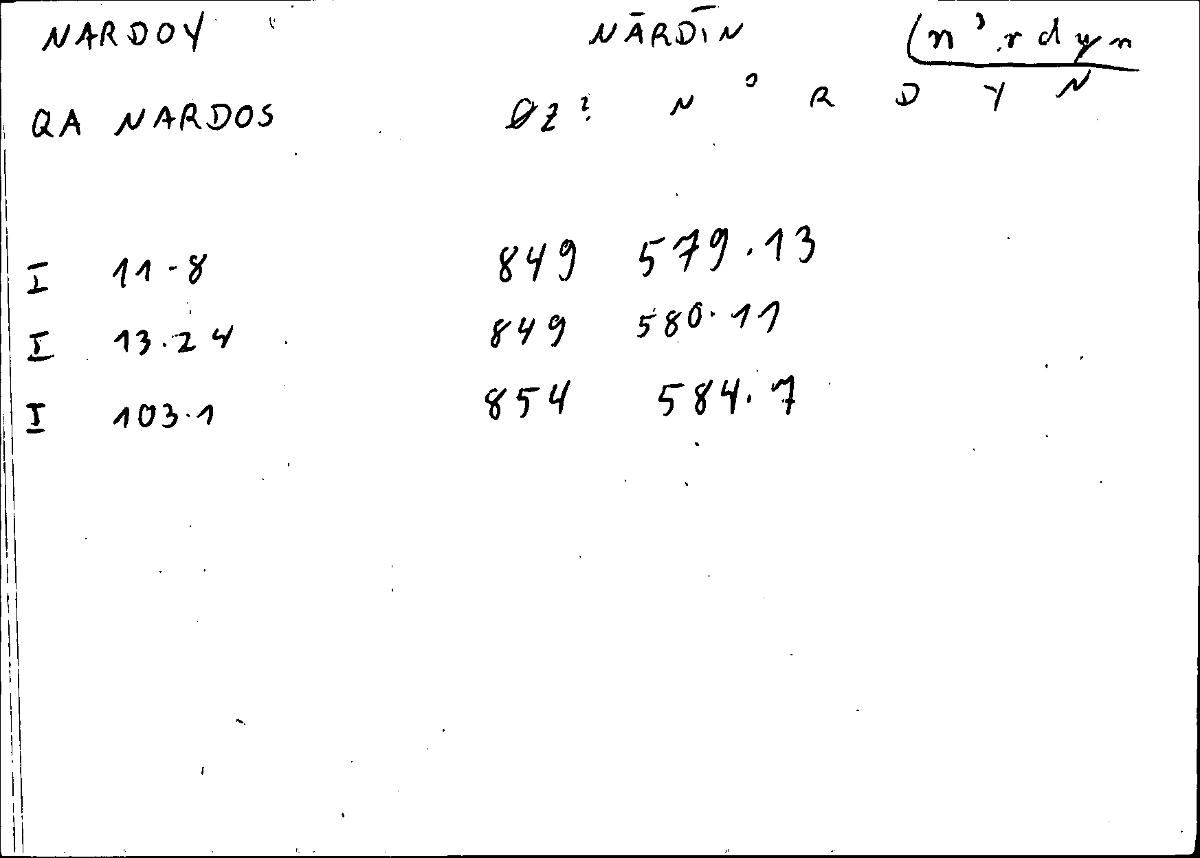 NARDOY NĀRDĪN (n ʾ r d y n
QA NARDOS ØZ? N ʾ R D Y N
I 11-8 849 579.13
I 13.24 849 580.11
I 103.1 854 584.7